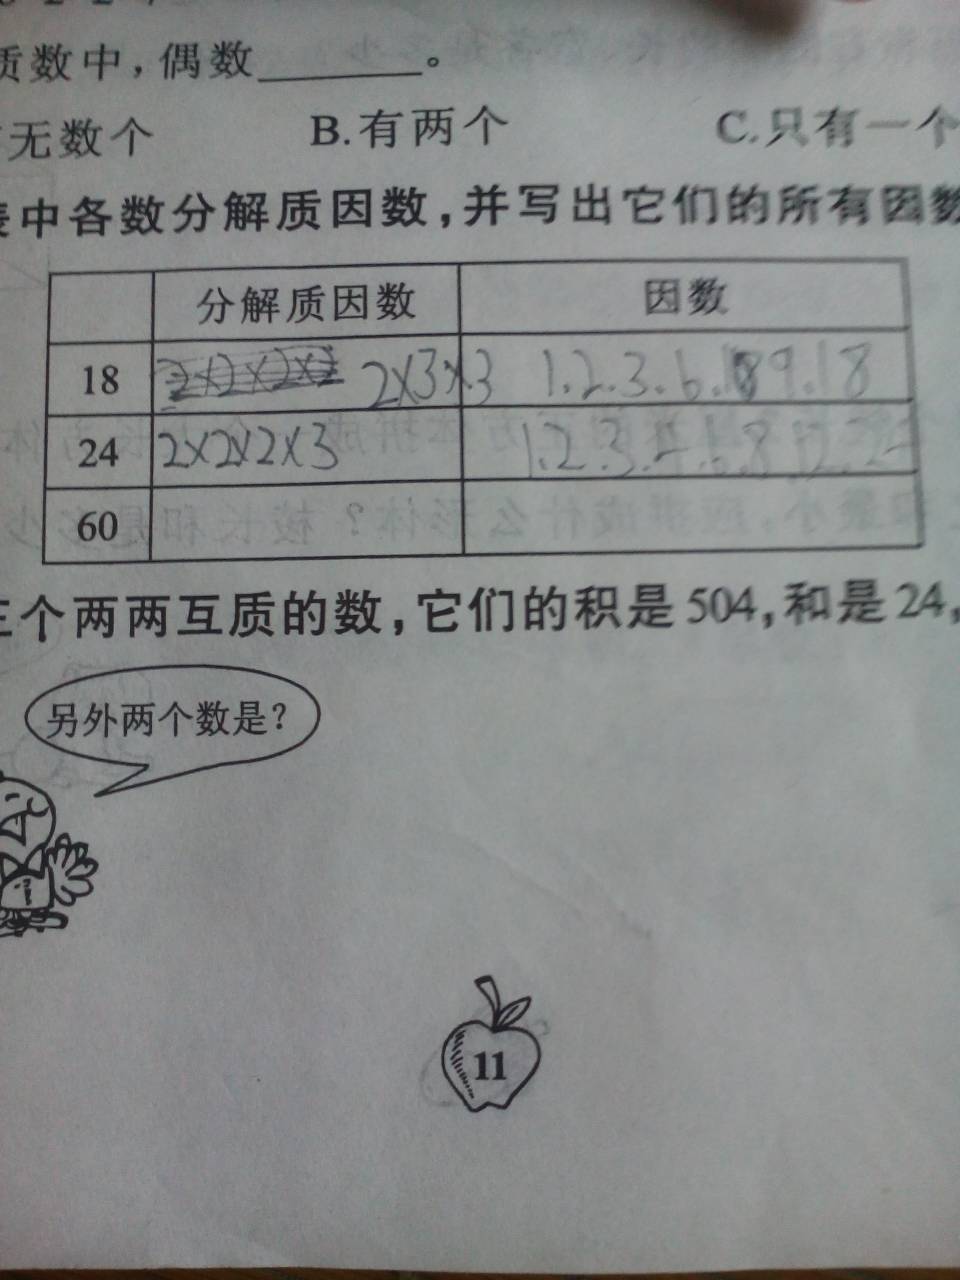 质数中，偶数______。
无数个 B.有两个 C.只有一个
表中各数分解质因数，并写出它们的所有因数
分解质因数 因数
18 2×3×3 1.2.3.6.9.18
24 2×2×2×3 1.2.3.4.6.8.12.24
60
三个两两互质的数，它们的积是504，和是24，
另外两个数是？
11